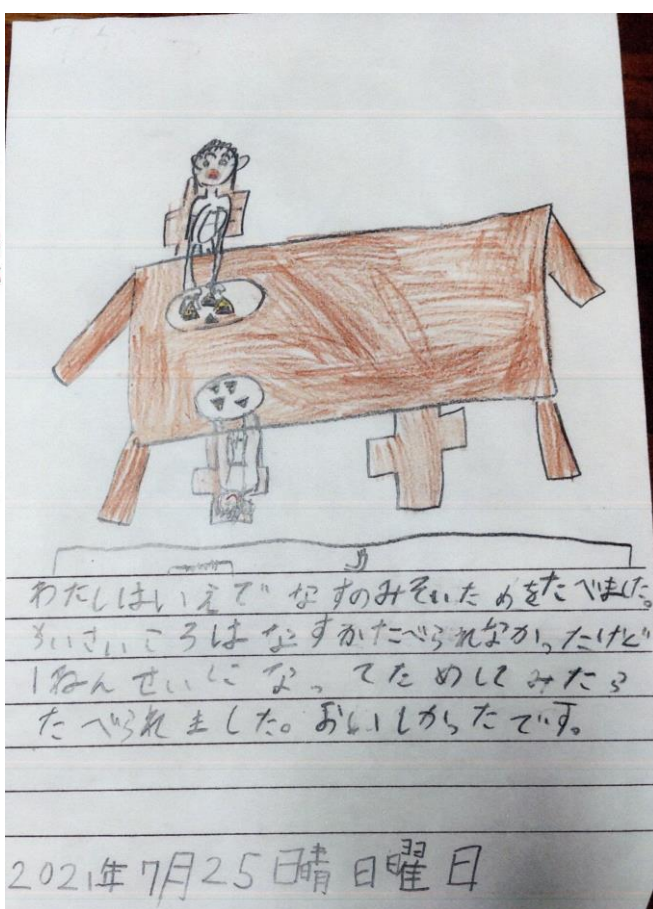 わたしはいえで なすのみそいためをたべました。
ちいさいころは なすがたべられなかったけど
1ねんせいに なってためしてみたら
たべられました。おいしかったです。
2021年7月25日晴日曜日